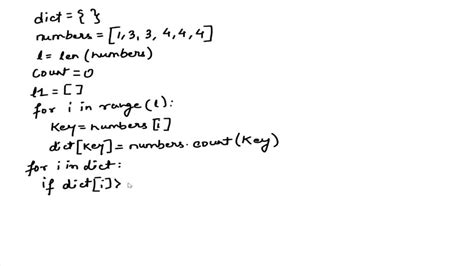 dict = { }
numbers = [1, 3, 3, 4, 4, 4]
l = len (numbers)
count = 0
l1 = [ ]
for i in range (l):
key = numbers [i]
dict [key] = numbers.count (key)
for i in dict:
if dict [i] >